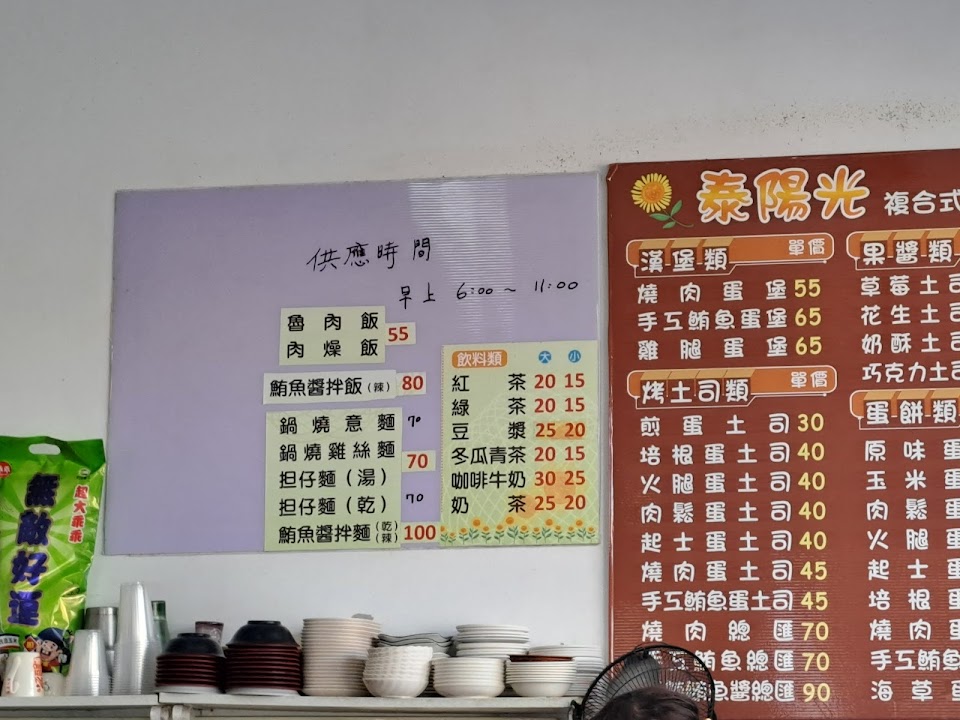 供應時間
早上 6:00~11:00
魯肉飯
肉燥飯
55
鮪魚醬拌飯(辣) 80
鍋燒意麵 70
鍋燒雞絲麵
70
担仔麵(湯)
担仔麵(乾) 70
鮪魚醬拌麵(乾)(辣) 100
飲料類 大 小
紅茶 20 15
綠茶 20 15
豆漿 25 20
冬瓜青茶 20 15
咖啡牛奶 30 25
奶茶 25 20
泰陽光 複合式
漢堡類 單價
燒肉蛋堡 55
手工鮪魚蛋堡 65
雞腿蛋堡 65
烤土司類 單價
煎蛋土司 30
培根蛋土司 40
火腿蛋土司 40
肉鬆蛋土司 40
起士蛋土司 40
燒肉蛋土司 45
手工鮪魚蛋土司 45
燒肉總匯 70
手工鮪魚總匯 70
鮪魚醬總匯 90
果醬類
草莓土司
花生土司
奶酥土司
巧克力土司
蛋餅類
原味蛋
玉米蛋
肉鬆蛋
火腿蛋
起士蛋
培根蛋
燒肉蛋
手工鮪魚
海草蛋
超大乖乖
無敵好運